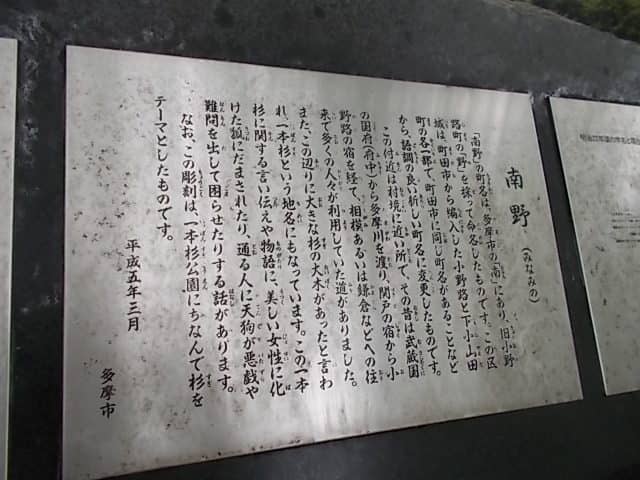 南野（みなみの）
「南野」の町名は、多摩市の「南」にあり、旧小野
路町の「野」を採って命名したものです。この区
域は、町田市から編入した小野路と下小山田
町の各一部で、町田市に同じ町名があることなど
から、語調の良い新しい町名に変更したものです。
この付近は村境に近い所で、その昔は武蔵国
の国府（府中）から多摩川を渡り、関戸の宿から小
野路の宿を経て、相模あるいは鎌倉などへの往
来で多くの人々が利用していた道がありました。
また、この辺りに大きな杉の大木があったと言わ
れ、一本杉という地名にもなっています。この一本
杉に関する言い伝えや物語に、美しい女性に化
けた狐にだまされたり、通る人に天狗が悪戯や
難問を出して困らせたりする話があります。
なお、この彫刻は、一本杉公園にちなんで杉を
テーマとしたものです。
平成五年三月
多摩市